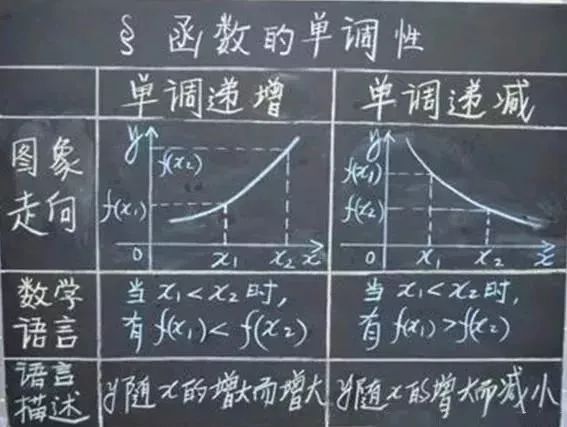 § 函数的单调性
单调递增 单调递减
图象
走向
y f(x2) f(x1) 0 x1 x2 x
y f(x1) f(x2) 0 x1 x2 x
数学
语言
当 x1<x2时,
有 f(x1)<f(x2)
当 x1<x2时,
有 f(x1)>f(x2)
语言
描述
y随x的增大而增大
y随x的增大而减小